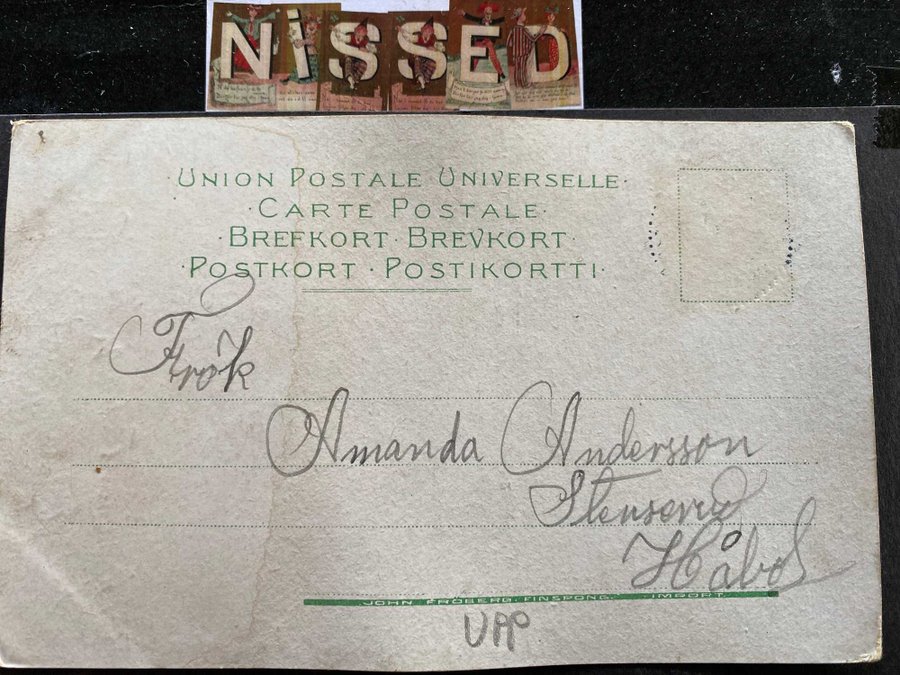 NiSSED
UNION POSTALE UNIVERSELLE·
·CARTE POSTALE·
·BREFKORT·BREVKORT·
·POSTKORT·POSTIKORTTI·
Frök
Amanda Andersson
Stenserud
Håbol
JOHN FRÖBERG. FINSPONG. IMPORT.
UPP